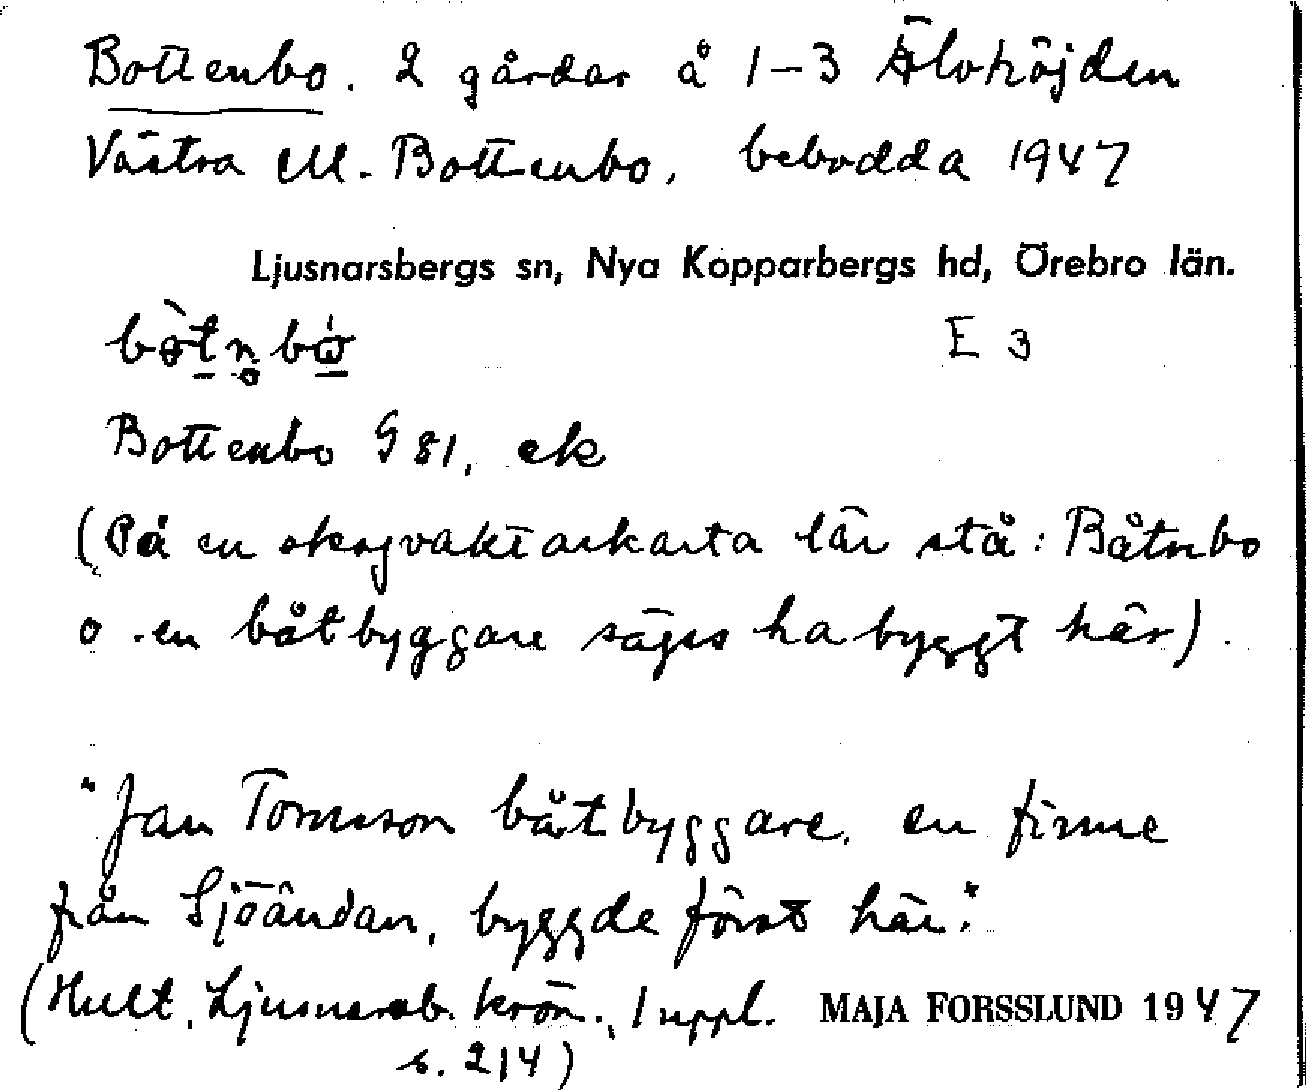 Bottenbo. 2 gårdar å 1-3 Älvhöjden
Västra M. Bottenbo, bebodda 1947
Ljusnarsbergs sn, Nya Kopparbergs hd, Örebro län.
E 3
Bottenbo G 81, ek
(På en skogvaktarkarta lär stå: Båtnbo
o en båtbyggare säges ha byggt här).
"Jan Tomsson båtbyggare, en finne
från Sjöändan, byggde först här."
(Hult, Ljusnarsb. krön., 1 uppl. MAJA FORSSLUND 1947
s. 214)